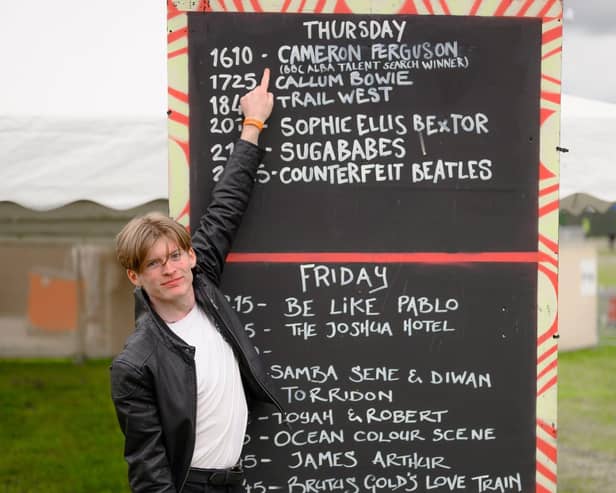 THURSDAY
1610 - CAMERON FERGUSON
(BBC ALBA TALENT SEARCH WINNER)
1725 CALLUM BOWIE
TRAIL WEST
SOPHIE ELLIS BEXTOR
- SUGABABES
5 - COUNTERFEIT BEATLES
FRIDAY
15 - BE LIKE PABLO
5 - THE JOSHUA HOTEL
-
SAMBA SENE & DIWAN
TORRIDON
TOYAH & ROBERT
- OCEAN COLOUR SCENE
5 - JAMES ARTHUR
45 - BRUTUS GOLD'S LOVE TRAIN